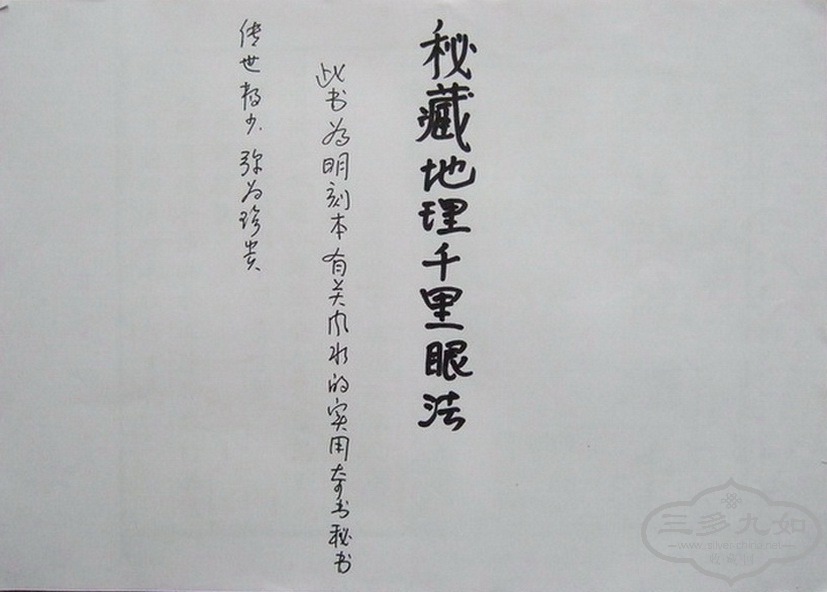 秘藏地理千里眼法
此书为明刻本有关风水的实用奇书秘书
传世极少.弥为珍贵
三多九如
www.silver-china.net
收藏馆